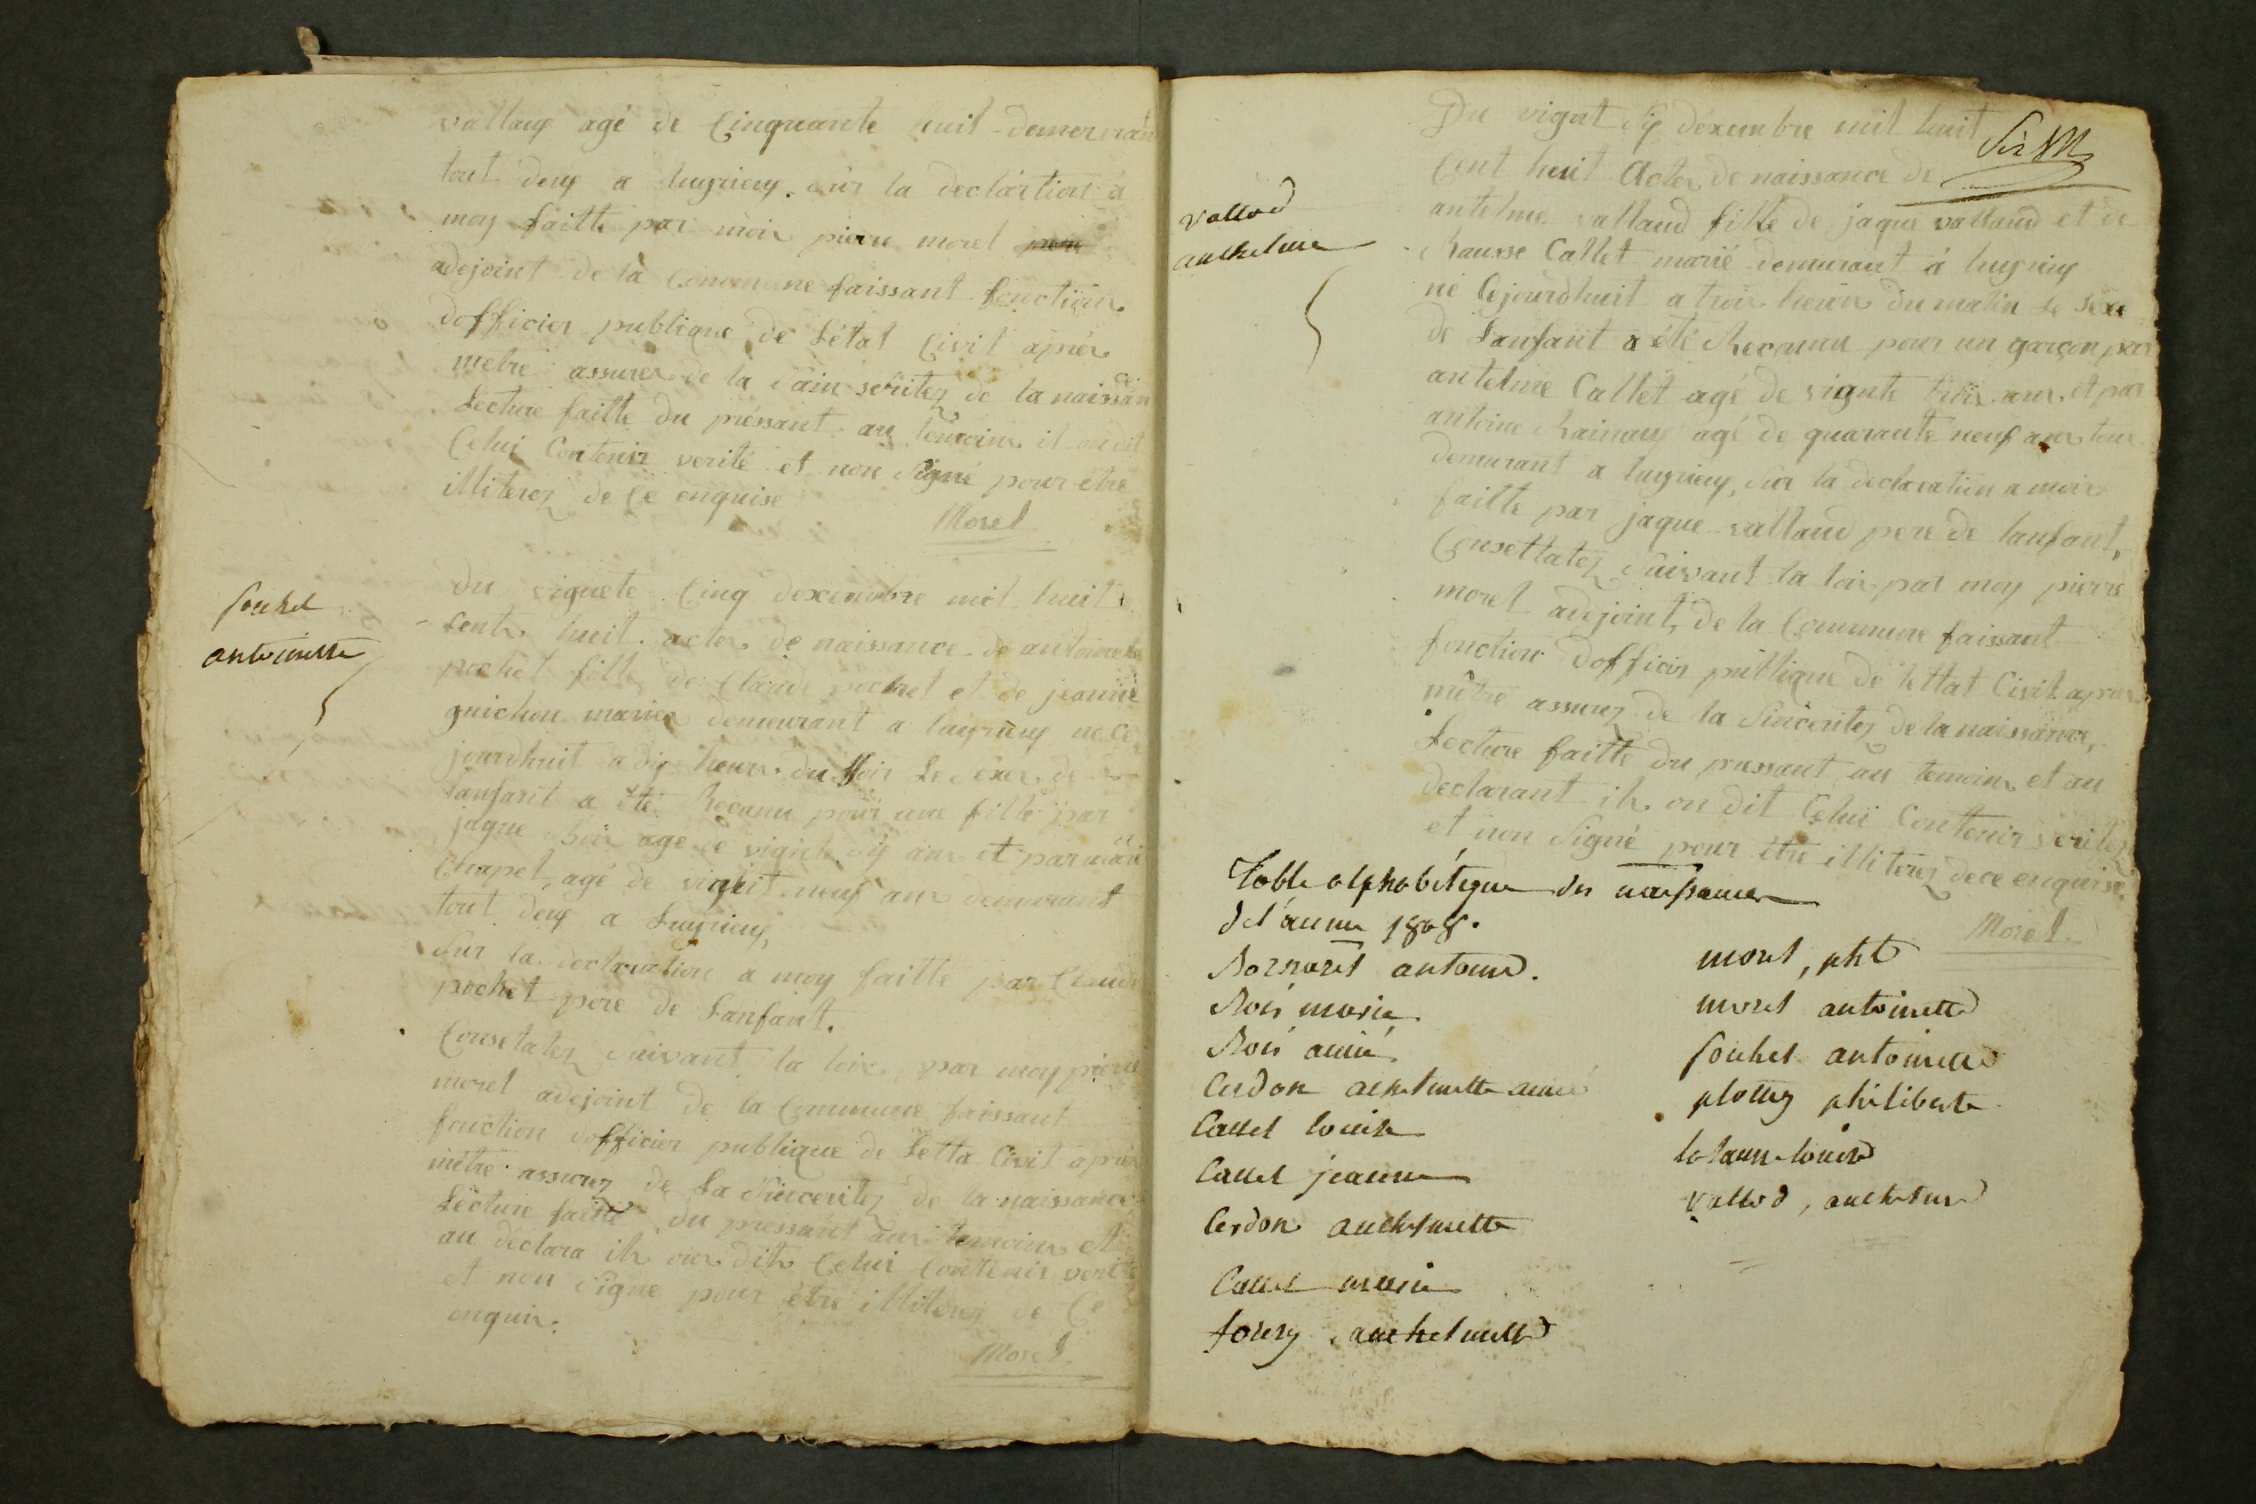 vallaux agé de Cinquante huit demeurant
tout deux a luyrieux. sur la declartion à
moy faitte par moir pierre morel
adejoint de là Commune faissant fonction
dofficier publique de Létat Civil apprer
metre assurer de la sain seritez de la naissan ce
Lecture faitte du préssant au temoins il on dit
Celui Contenir verité et non Signé pour être
illiterez de Ce enquise
Morel
pochet
antoinette
du vignete Cinq dexembre mil huit
Cent huit actes de naissance de antoinette
pochet fille de Claude pochet et de jeanne
guichon mariez demeurant a luyrieux ne Ce
jourdhuit a dix heure du Soir Le sexe de
lanfant a été Reconnu pour une fille par
jaque bois agé de vignte six ans et par
Chapel, agé de vignt neuf ans demeurant
tout deux a Luyrieux,
Sur la declaration a moy faitte par Claude
pochet pere de Lanfant.
Consetatez Suivant la loix par moy pierre
morel adejoint de la Commune faissant
fonction dofficier publique de Letta Civil aprier
mêtre assurez de La Sinceritez de la naissance
Lecture faitte du pressant aux temoins et
au declara ils on dit Celui Contenir verité
et non Signe pour être illiterez de Ce
enquis.
Morel
Du vignt six déxembre mil huit
Cent huit Actes de naissance de
vallod
anthelme
antelme vallaud fille de jaque vallaud et de
Rausse Callet marié demeurant á luyrieux
né Cejourdhuit a trois heures du matin Le sexe
de Lanfant a été Reconnu pour un garçon par
antelme Callet agé de vignte trois ans, et par
antoine Rainaux agé de quarante neuf ans tous
demurant a luyrieux, Sur la declaration a moir
faitte par jaque vallaud pere de lanfant,
Consettatez Suivant la loix par moy pierre
morel adejoint, de la Commune faissant
fonction dofficier publique de lettat Civil aprier
mêtre assurez de la Sinceritez de la naissance,
Lecture faitte du pressant au temoins et au
declarant ils on dit Celui Contenir veritez
et non Signé pour être illiterez de ce enquise
Morel
Table alphabétique des naissances
de l'année 1808.
Bornaret antoine.
Bois marie
Bois aimé
Cerdon anthelmette aimé
Callet louise
Callet jeanne
Cerdon anthelmette
Callet marie
foury anthelmette
morel, pht
morel antoinette
pochet antoinette
plottey philiberte
louise
vallod, anthelme